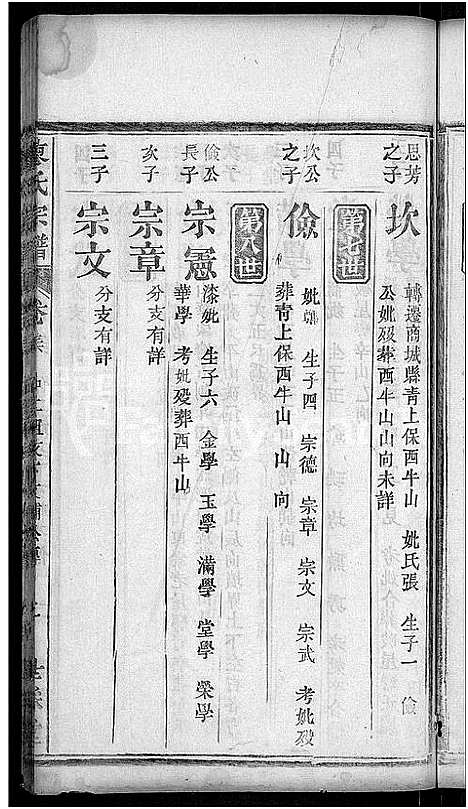 思芳之子
坎
轉遷商城縣青上保西牛山 妣氏張 生子一 儉
公妣殁葬西牛山山向未詳
第七世
坎公之子
儉
妣韓 生子四 宗德 宗章 宗文 宗武 考妣殁
葬青上保西牛山 山 向
第八世
儉公長子
宗憲
漆妣 生子六 金學 玉學 滿學 堂學 榮學
華學 考妣殁葬西牛山
次子
宗章
分支有詳
三子
宗文
分支有詳
陳氏宗譜 卷